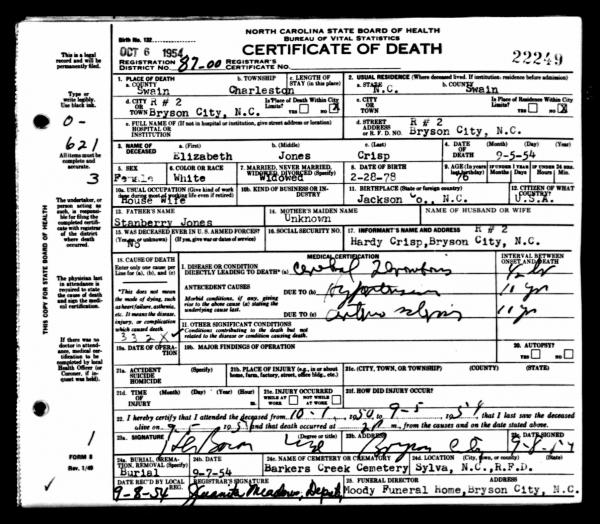 NORTH CAROLINA STATE BOARD OF HEALTH
BUREAU OF VITAL STATISTICS
CERTIFICATE OF DEATH
Birth No. 132
OCT 6 1954
22249
REGISTRATION DISTRICT NO. 87-00 REGISTRAR'S CERTIFICATE NO.
1. PLACE OF DEATH
a. COUNTY Swain
b. TOWNSHIP Charleston
c. LENGTH OF STAY (in this place)
2. USUAL RESIDENCE (Where deceased lived. If institution: residence before admission)
a. STATE N.C.
b. COUNTY Swain
d. CITY OR TOWN R # 2 Bryson City, N.C.
Is Place of Death Within City Limits?
YES NO X
c. CITY OR TOWN R # 2 Bryson City, N.C.
Is Place of Residence Within City Limits?
YES NO X
e. FULL NAME OF (If not in hospital or institution, give street address or location) HOSPITAL OR INSTITUTION
d. STREET ADDRESS OR R. F. D. NO. R # 2 Bryson City, N.C.
3. NAME OF DECEASED
a. (First) Elizabeth
b. (Middle) Jones
c. (Last) Crisp
4. DATE OF DEATH (Month) (Day) (Year) 9-5-54
5. SEX Female
6. COLOR OR RACE White
7. MARRIED, NEVER MARRIED, WIDOWED, DIVORCED (Specify) Widowed
8. DATE OF BIRTH 2-28-78
9. AGE 76
10a. USUAL OCCUPATION (Give kind of work done during most of working life, even if retired) House wife
10b. KIND OF BUSINESS OR INDUSTRY
11. BIRTHPLACE (State or foreign country) Jackson Co., N.C.
12. CITIZEN OF WHAT COUNTRY? U.S.A.
13. FATHER'S NAME Stanberry Jones
14. MOTHER'S MAIDEN NAME Unknown
NAME OF HUSBAND OR WIFE
15. WAS DECEASED EVER IN U. S. ARMED FORCES?
(Yes, no, or unknown) (If yes, give war or dates of service)
No
16. SOCIAL SECURITY NO.
17. INFORMANT'S NAME AND ADDRESS R # 2
Hardy Crisp, Bryson City, N.C.
18. CAUSE OF DEATH
Enter only one cause per line for (a), (b), and (c)
MEDICAL CERTIFICATION
INTERVAL BETWEEN ONSET AND DEATH
I. DISEASE OR CONDITION DIRECTLY LEADING TO DEATH* (a) Cerebral Thrombosis
*This does not mean the mode of dying, such as heart failure, asthenia, etc. It means the disease, injury, or complication which caused death.
ANTECEDENT CAUSES
Morbid conditions, if any, giving rise to the above cause (a) stating the underlying cause last.
DUE TO (b) Hypertension 11 yrs
DUE TO (c) 11 yrs
332X
II. OTHER SIGNIFICANT CONDITIONS
Conditions contributing to the death but not related to the disease or condition causing death.
19a. DATE OF OPERATION
19b. MAJOR FINDINGS OF OPERATION
20. AUTOPSY?
YES NO
21a. ACCIDENT SUICIDE HOMICIDE (Specify)
21b. PLACE OF INJURY (e.g., in or about home, farm, factory, street, office bldg., etc.)
21c. (CITY, TOWN, OR TOWNSHIP) (COUNTY) (STATE)
21d. TIME OF INJURY (Month) (Day) (Year) (Hour)
21e. INJURY OCCURRED
WHILE AT WORK NOT WHILE AT WORK
21f. HOW DID INJURY OCCUR?
22. I hereby certify that I attended the deceased from 10-1, 1950, to 9-5, 1954, that I last saw the deceased
alive on 9-5, 1954 and that death occurred at m., from the causes and on the date stated above.
23a. SIGNATURE (Degree or title)
23b. ADDRESS Bryson City
23c. DATE SIGNED
24a. BURIAL, CREMATION, REMOVAL (Specify) Burial
24b. DATE 9-7-54
24c. NAME OF CEMETERY OR CREMATORY Barkers Creek Cemetery
24d. LOCATION (City, town, or county) (State) Sylva, N.C., R.F.D.
DATE REC'D BY LOCAL REG. 9-8-54
REGISTRAR'S SIGNATURE Juanita Meadows, Deputy
25. FUNERAL DIRECTOR ADDRESS
Moody Funeral Home, Bryson City, N.C.
This is a legal record and will be permanently filed.
Type or write legibly. Use black ink.
0-
621
All items must be complete and accurate.
3
The undertaker, or person acting as such, is responsible for filing the completed certificate with registrar of the district where death occurred.
The physician last in attendance is required to state the cause of death and sign the medical certification.
If there was no doctor in attendance, medical certification to be completed by local Health Officer (or Coroner, if inquest was held).
1
FORM 8
Rev. 1/49
THIS COPY FOR STATE BOARD OF HEALTH